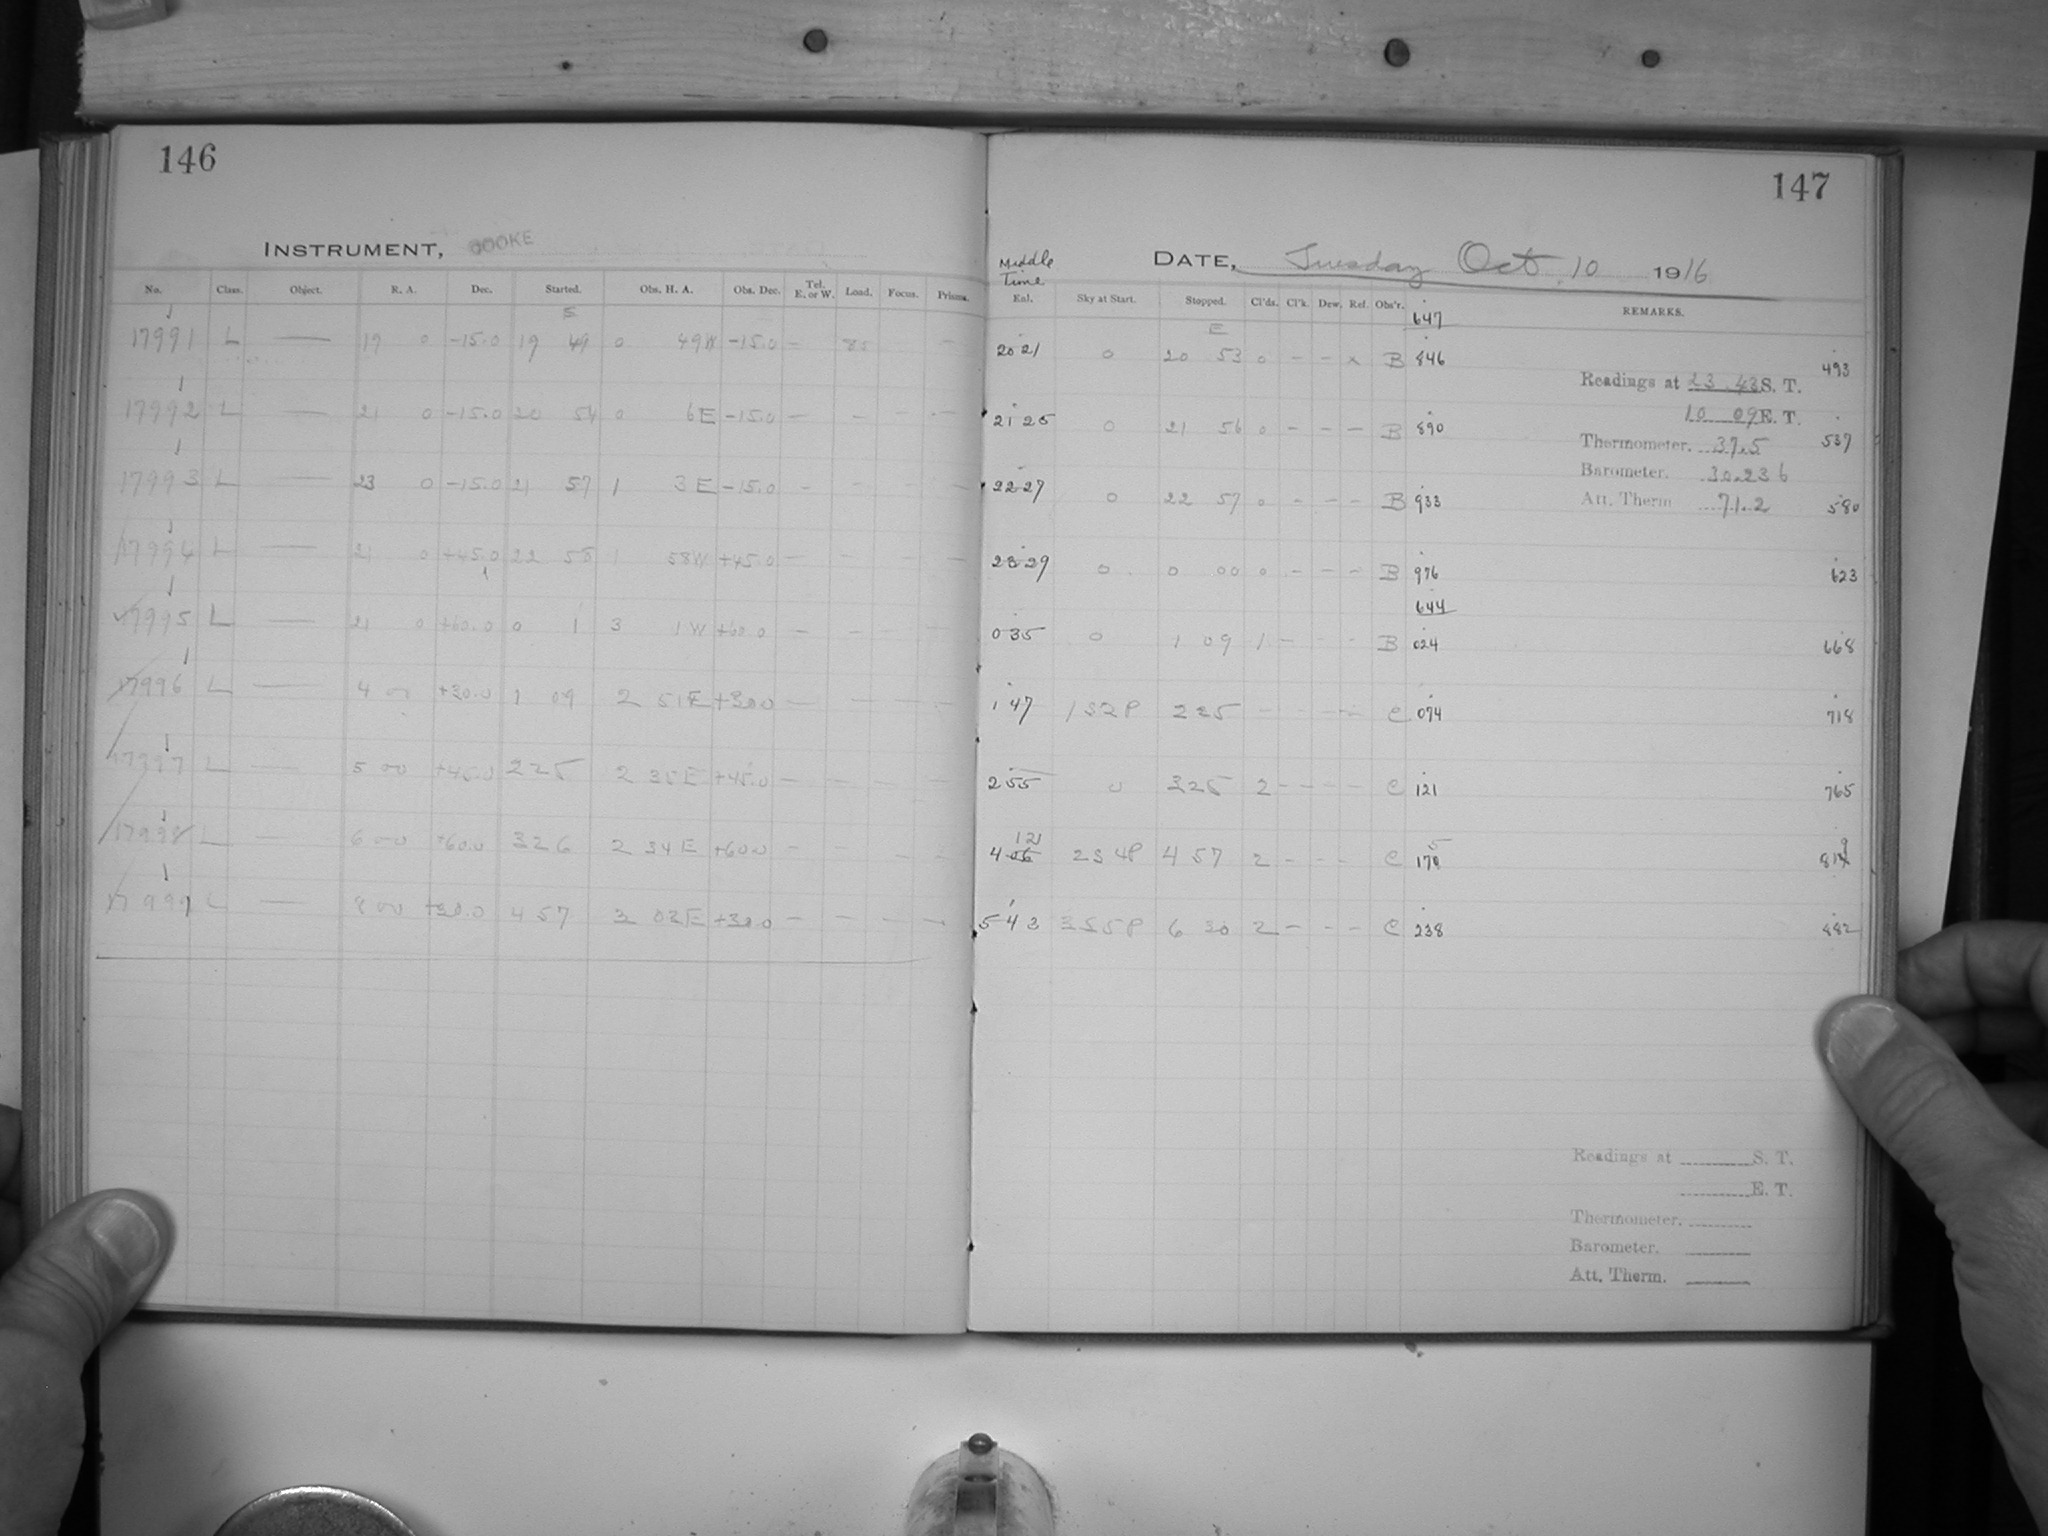 146
INSTRUMENT, COOKE
No. Class. Object. R. A. Dec. Started. Obs. H. A. Obs. Dec. Tel. E. or W. Load. Focus. Prisms.
17991 L — 19 0 -15.0 19 49 0 49W -15.0 - —
17992 L — 21 0 -15.0 20 54 0 6E -15.0 — - - —
17993 L — 23 0 -15.0 21 57 1 3E -15.0 - - - —
17994 L — 21 0 +45.0 22 58 1 58W +45.0 — - - —
17995 L — 21 0 +60.0 0 1 3 1W +60.0 — - - -
17996 L — 4 00 +30.0 1 09 2 51E +30.0 — — - —
17997 L — 5 00 +45.0 2 25 2 35E +45.0 — — — —
17998 L — 6 00 +60.0 3 26 2 34E +60.0 - - - —
17999 L — 8 00 +30.0 4 57 3 03E +30.0 — - - —
147
DATE, Tuesday Oct 10 1916
Middle Time
Eal. Sky at Start. Stopped. Cl'ds. Cl'k. Dew. Ref. Obs'r. REMARKS.
647
20 21 0 20 53 0 - - x B 846 493
Readings at 23 43 S. T.
10 09 E. T.
21 25 0 21 56 0 - - - B 890 537
Thermometer. 37.5
Barometer. 30.236
22 27 0 22 57 0 - - - B 933 580
Att. Therm 71.2
23 29 0 0 00 0 - - - B 976 623
644
0 35 0 1 09 1 - - - B 024 668
1 47 1S2P 2 25 - - - - C 074 718
2 55 0 3 25 2 - - - C 121 765
4 12 2S4P 4 57 2 - - - C 175 819
5 43 3S5P 6 30 2 - - - C 238 882
Readings at S. T.
E. T.
Thermometer.
Barometer.
Att. Therm.